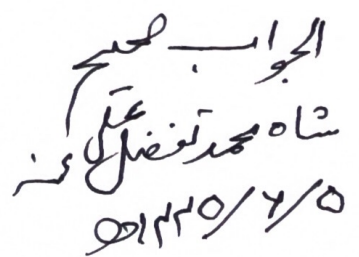 الجواب صحیح
شاہ محمد تفضل علی
۵/۶/۱۴۳۵ھ